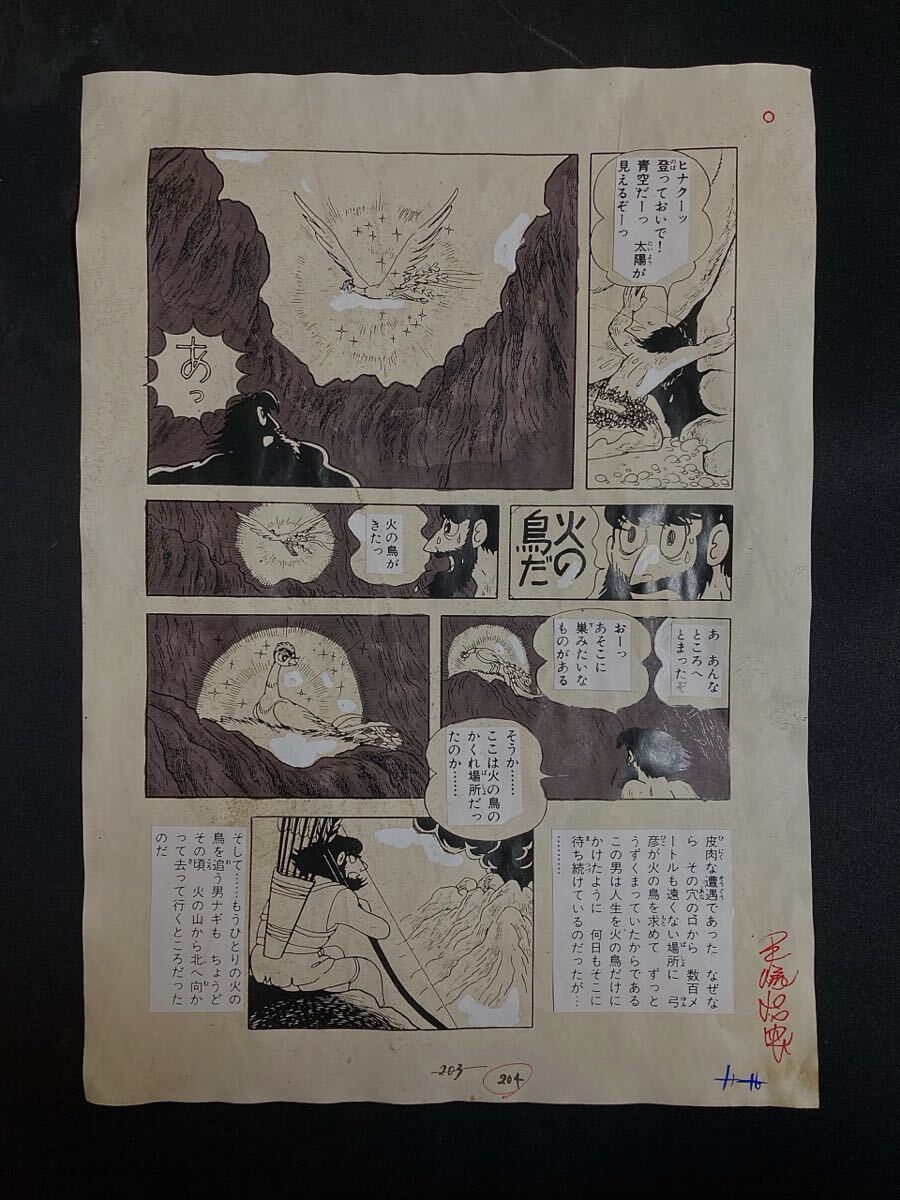 ヒナクーッ
登っておいで！
青空だーっ　太陽が
見えるぞーっ
あっ
火の
鳥だ
火の鳥が
きたっ
あ　あんな
ところへ
とまったぞ
おーっ
あそこに
巣みたいな
ものがある
そうか……
ここは火の鳥の
かくれ場所だっ
たのか……
皮肉な遭遇であった　なぜな
ら　その穴の口から　数百メ
ートルも遠くない場所に　弓
彦が火の鳥を求めて　ずっと
うずくまっていたからである
この男は人生を火の鳥だけに
かけたように　何日もそこに
待ち続けているのだったが…
…………
そして……もうひとりの火の
鳥を追う男ナギも　ちょうど
その頃　火の山から北へ向か
って去って行くところだった
のだ
203
204